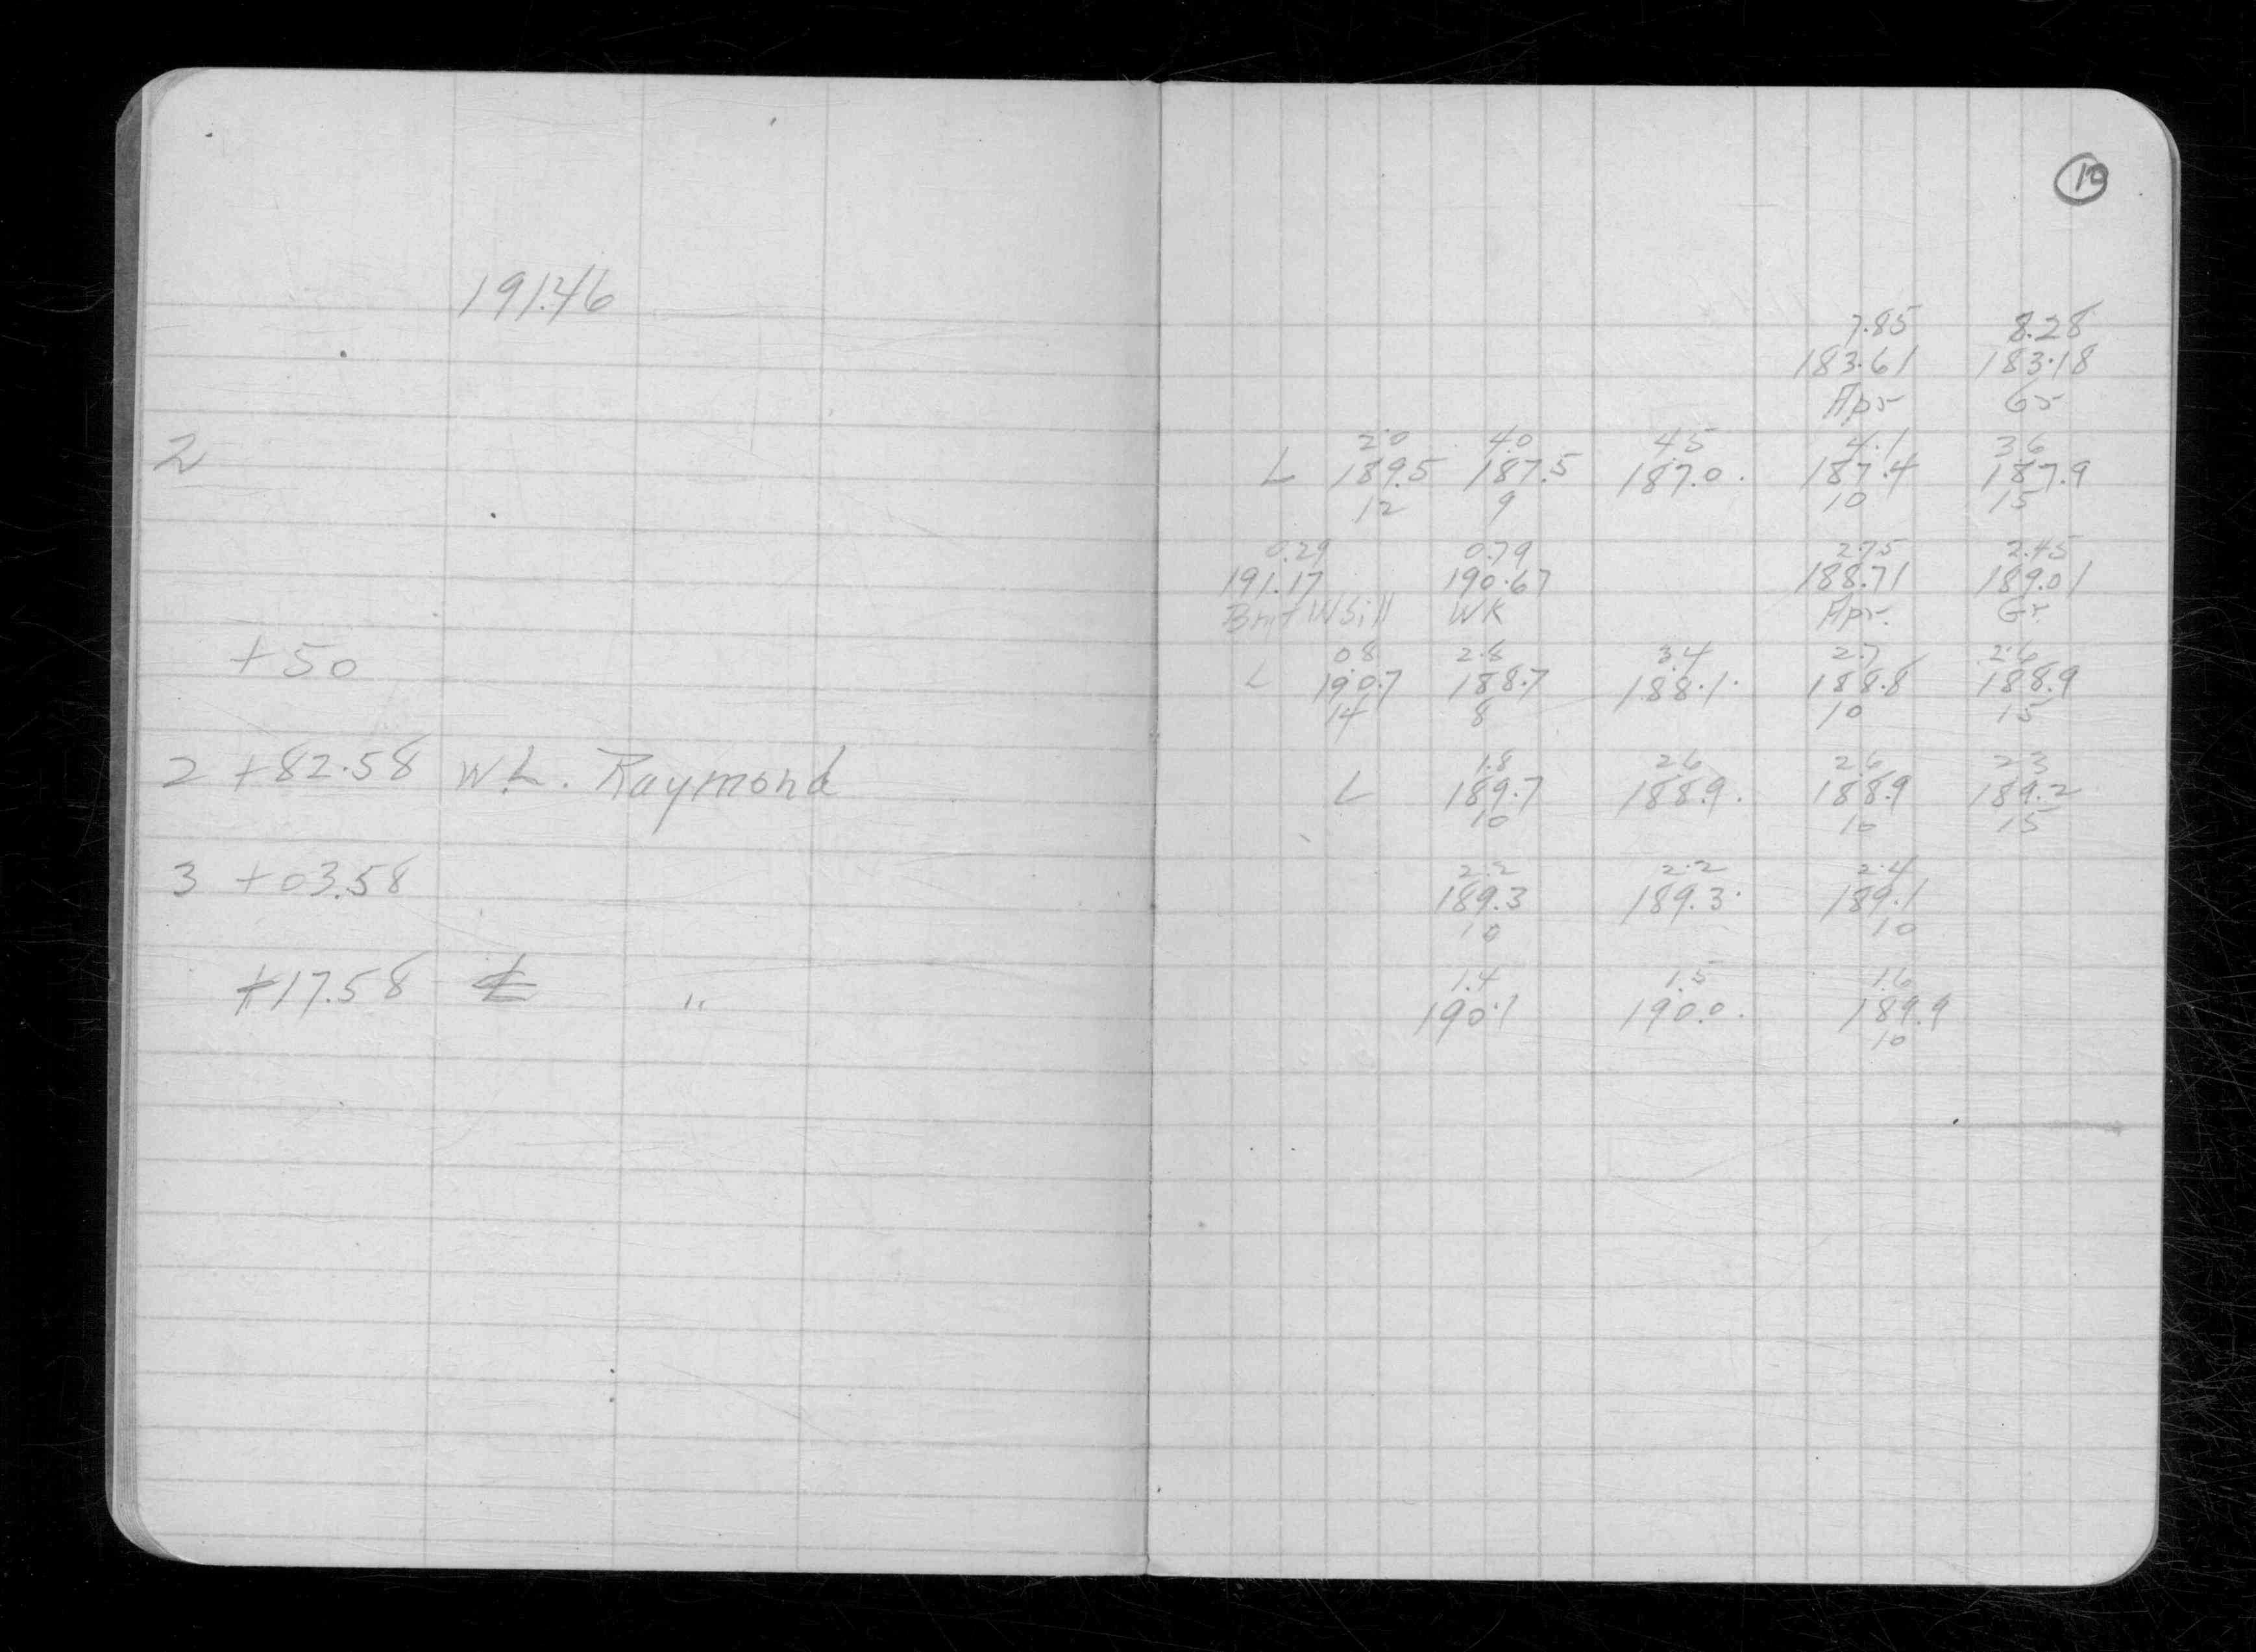 10
191.46
7.85 8.28
183.61 183.18
Apr Gr
2.0 4.0 4.5 4.1 3.6
2 L 189.5 187.5 187.0. 187.4 187.9
12 9 10 15
0.29 0.79 2.75 2.45
191.17 190.67 188.71 189.01
Bmt W Sill WK Apr. Gr.
0.8 2.8 3.4 2.7 2.6
+50 L 190.7 188.7 188.1. 188.8 188.9
14 8 10 15
1.8 2.6 2.6 2.3
2 +82.58 W.L. Raymond L 189.7 188.9. 188.9 189.2
10 10 15
2.2 2.2 2.4
3 +03.58 189.3 189.3. 189.1
10 10
1.4 1.5 1.6
+17.58 ℄ " 190.1 190.0. 189.9
10